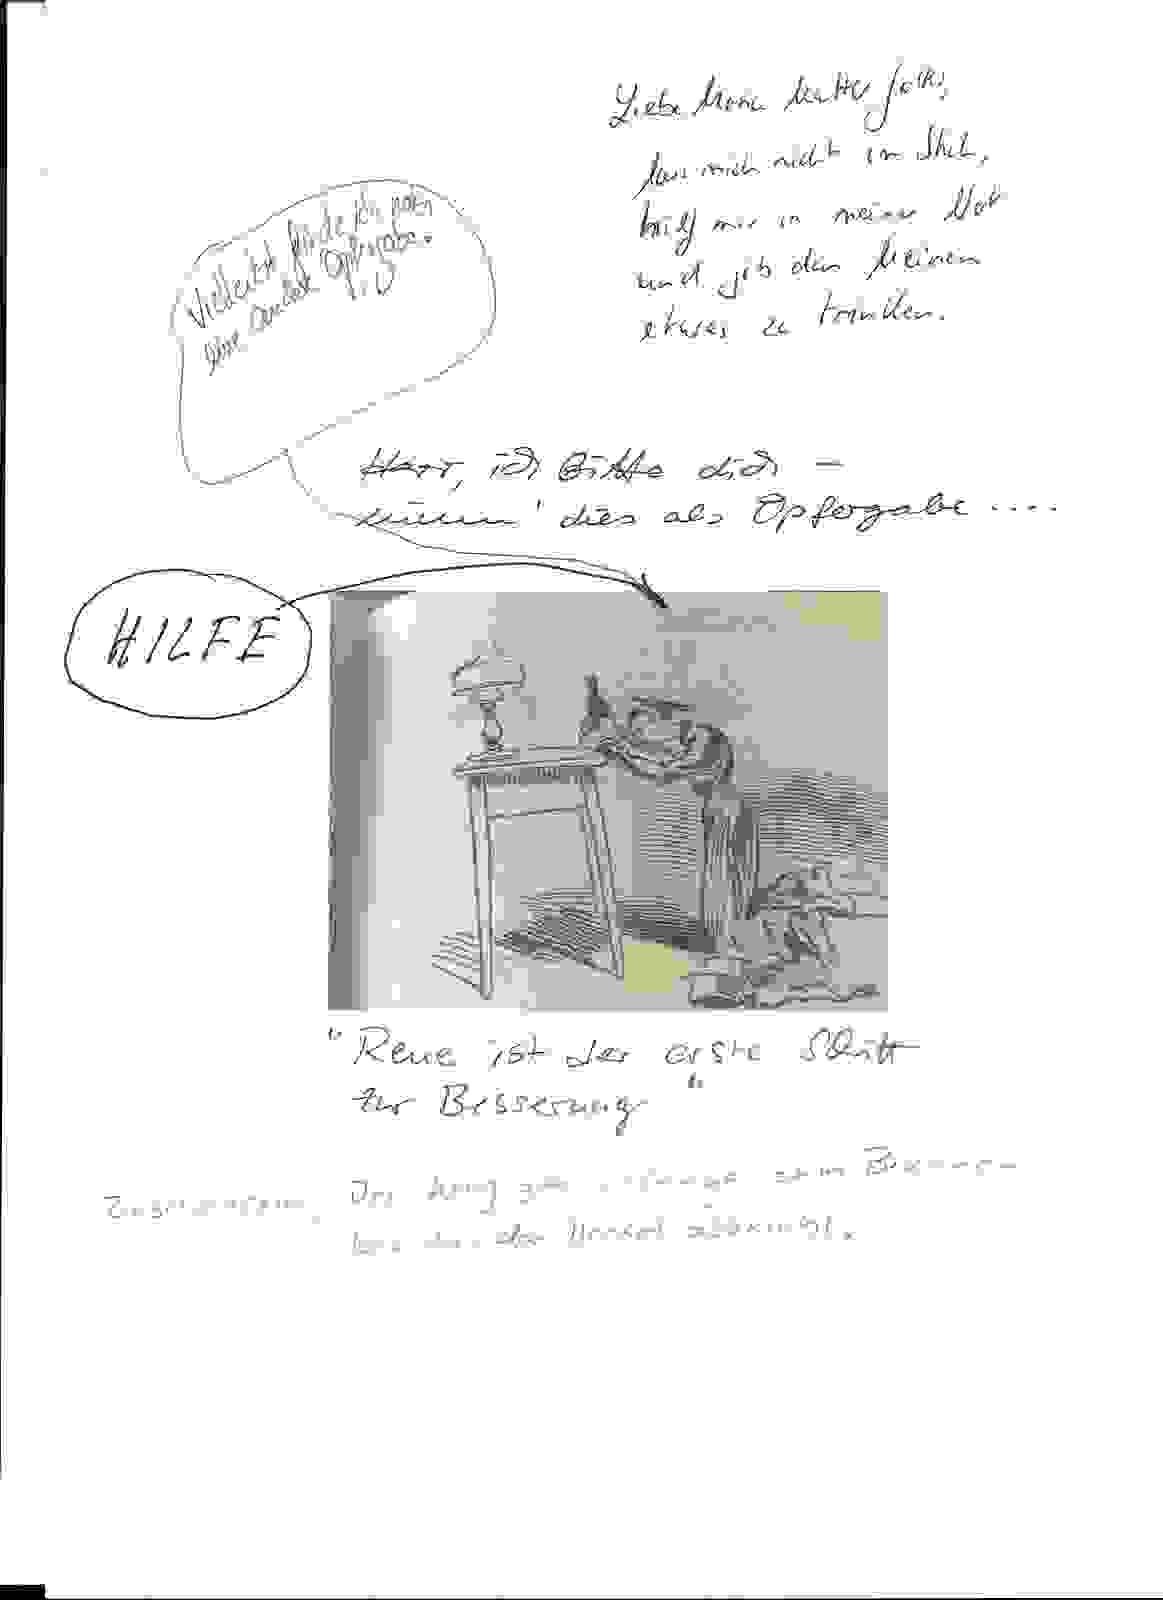 Liebe Maria Mutter Gottes,
lass mich nicht im Stich,
hilf mir in meiner Not
und gib den Meinen
etwas zu trinken.
Vielleicht finde ich noch
eine andere Opfergabe.
Herr, ich bitte dich –
nimm' dies als Opfergabe....
HILFE
"Reue ist der erste Schritt
zur Besserung"
Der Krug geht solange zum Brunnen
bis der Henkel abbricht.